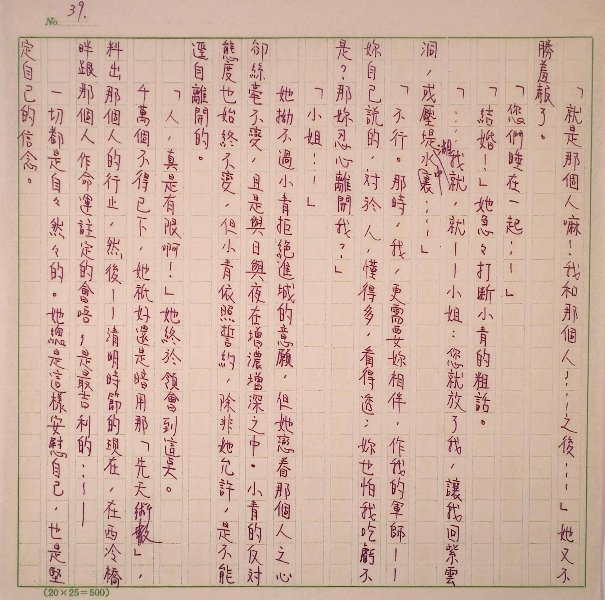 No. 39.
「就是那個人麻！我和那個人……之後……」她又不
勝羞赧了。
「您們睡在一起……」
「結婚！」她急々打斷小青的粗話。
「……我就，就——小姐：您就放了我，讓我回紫雲
洞，或壓堤水湖中……」
「不行。那時，我，更需要妳相伴，作我的軍師——
妳自己說的，對於人，懂得多，看得透；妳也怕我吃虧不
是？那妳忍心離開我？」
「小姐……」
她拗不過小青拒絕進城的意願，但她戀着那個人之心
卻絲毫不變，且是與日與夜在增濃增深之中。小青的反對
態度也始終不變，但小青依照誓約，除非她允許，是不能
逕自離開的。
「人，真是有限啊！」她終於領會到這点。
千萬個不得已下，她祇好還是暗用那「先天術數」，
料出那個人的行止，然後——清明時節的現在，在西冷橋
畔跟那個人作命運註定的會晤，是最吉利的……——
一切都是自々然々的。她總是這樣安慰自己，也是堅
定自己的信念。
(20×25=500)